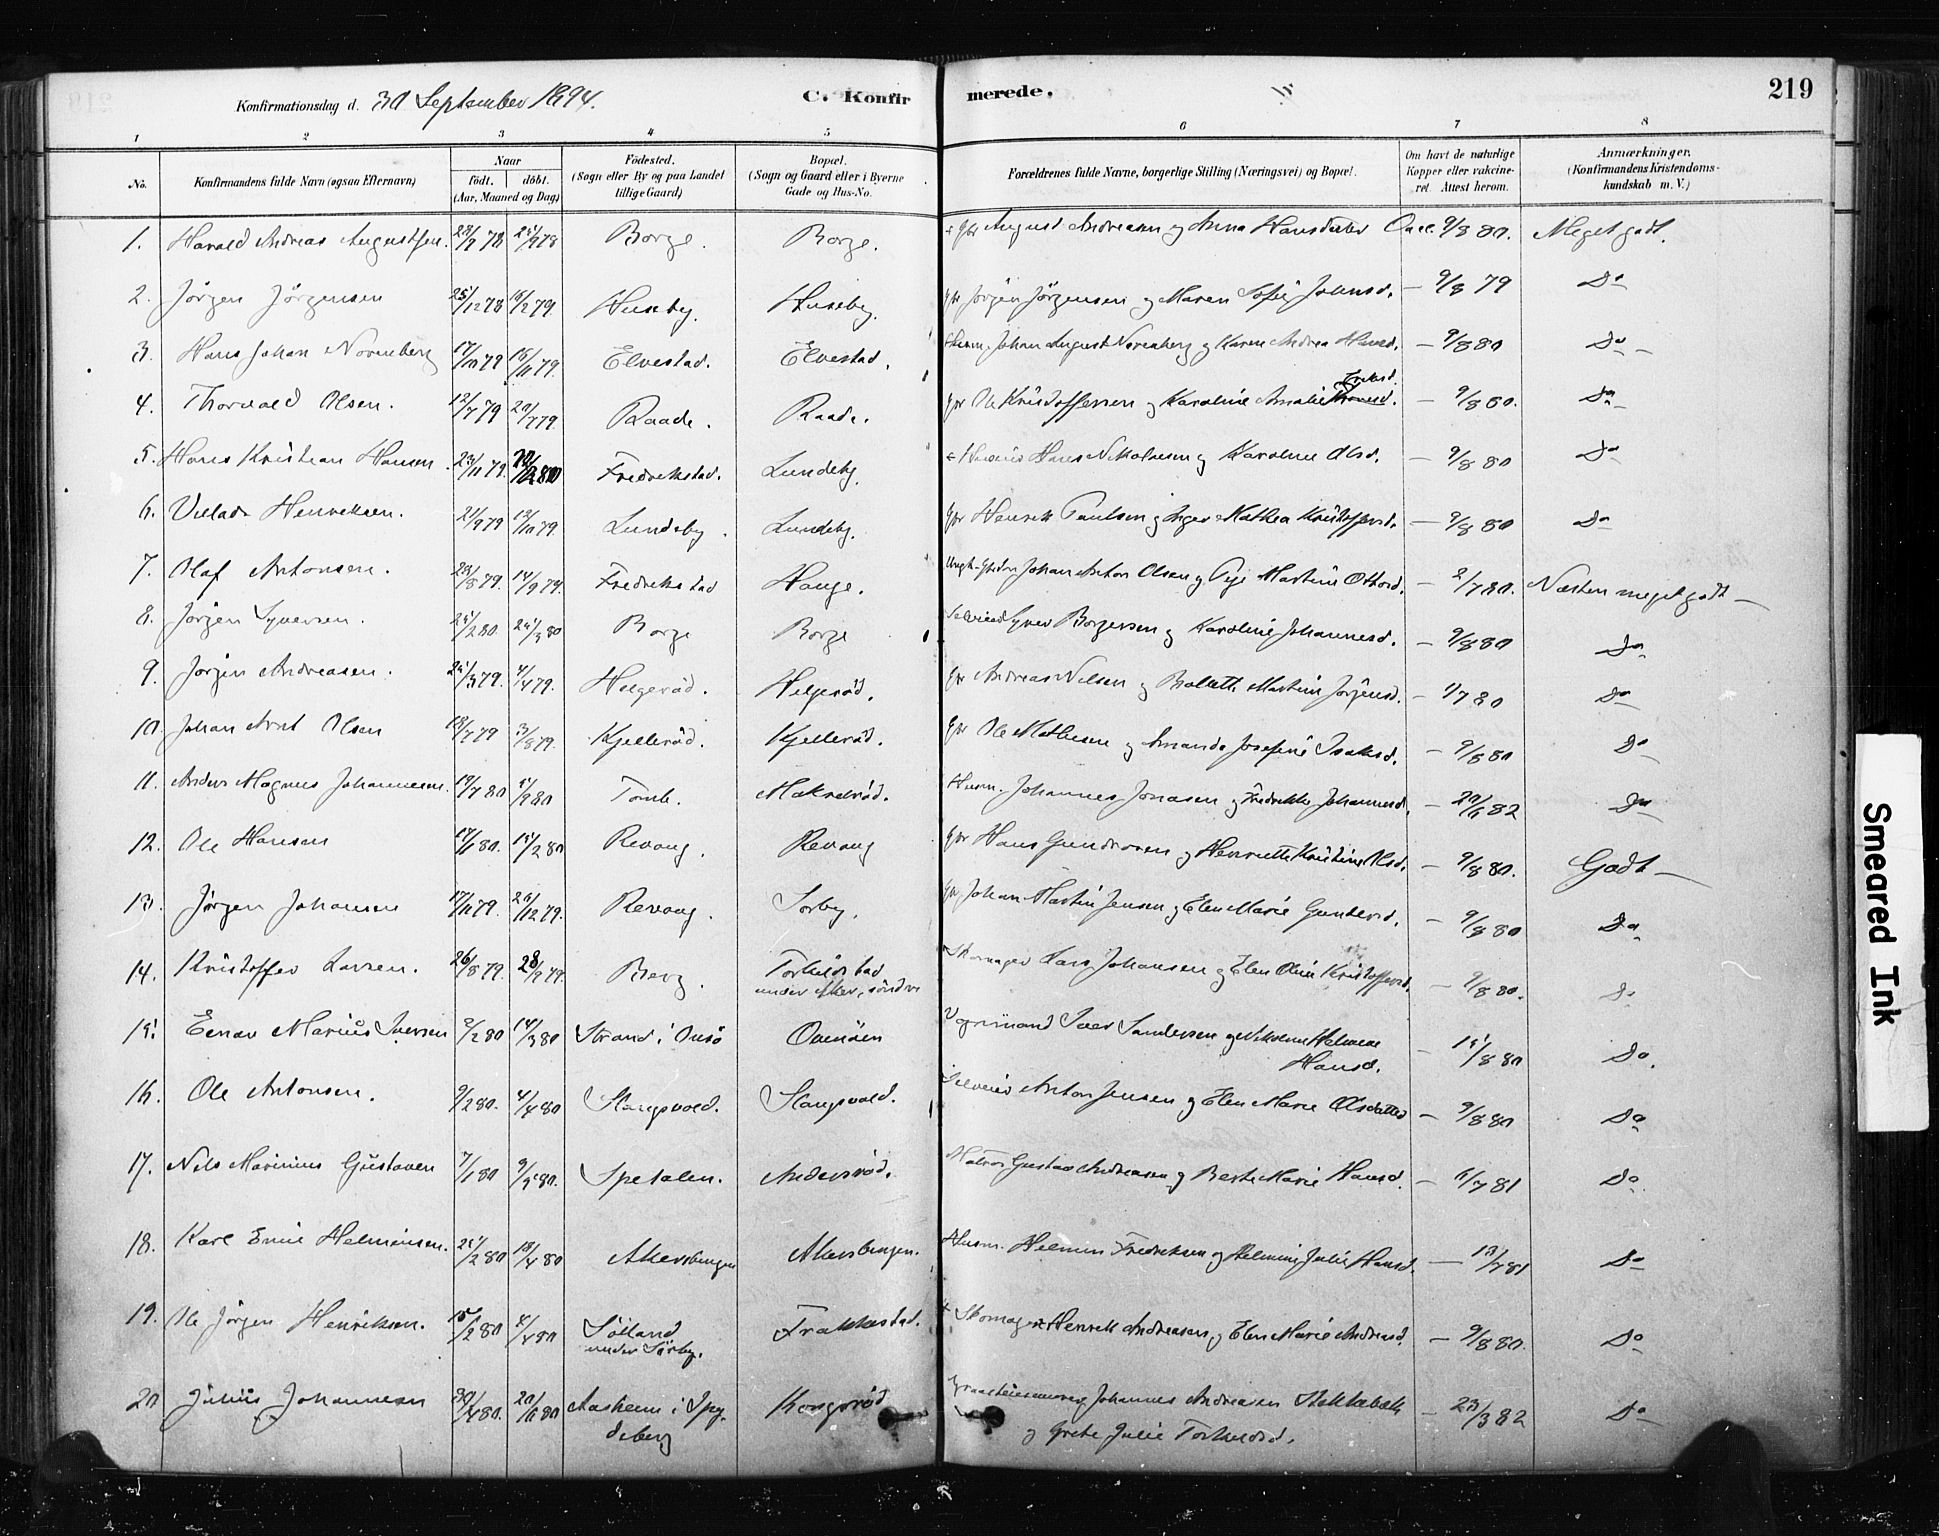 Konfirmationsdag d. 30 September 1894. C. Konfirmerede. 219
1 2 3 4 5 6 7 8
No. Konfirmandens fulde Navn (ogsaa Efternavn) Naar födt. döbt. (Aar, Maaned og Dag) Födested. (Sogn eller By og paa Landet tillige Gaard) Bopæl. (Sogn og Gaard eller i Byerne Gade og Hus-No. Forældrenes fulde Navne, borgerlige Stilling (Næringsvei) og Bopæl. Om havt de naturlige Kopper eller vakcineret. Attest herom. Anmærkninger. (Konfirmandens Kristendomskundskab m. V.)
1. Harald Andreas Augustsen. Borge. Borge. Gbr August Andreasen og Anna Hansdatter Vacc. 9/8 80. Meget godt.
2. Jörgen Jörgensen 25/12 78 16/2 79. Huseby. Huseby. Gbr Jörgen Jörgensen og Maren Sofie Johnsd. — 9/8 79 Do
3. Hans Johan Norenberg 17/10 79 16/11 79. Elvestad. Elvestad. Husm. Johan August Norenberg og Karen Andrea Hansd. — 9/8 80 Do
4. Thorvald Olsen. 12/7 79 20/7 79. Raade. Raade. Gbr Ole Kristoffersen og Karoline Amalie — 9/8 80. Do
5. Hans Kristian Hansen 23/11 79. Fredrikstad. Lundeby. Hans Nikolaisen og Karoline Olsd. — 9/8 80 Do
6. Villads Henriksen. 21/9 79 19/10 79. Lundeby. Lundeby. Gbr Henrik Paulsen og Inger Mathea Kristoffersd. — 9/8 80 Do
7. Olaf Antonsen. 23/8 79. 14/9 79. Fredrikstad Hauge. Johan Anton Olsen og Martine Ottosd. — 2/7 80. Næsten meget godt —
8. Jörgen Syversen. 25/2 80 25/3 80 Borge Borge Syver Borgersen og Karoline Johannesd. — 9/8 80 Do
9. Jörgen Andreasen. 25/3 79. 4/4 79. Helgeröd. Helgeröd. Gbr Andreas Nilsen og Bolette Martine Jörgensd. — 1/7 80 Do
10. Johan Arnt Olsen 13/7 79 3/8 79. Kjelleröd. Kjelleröd. Gbr Ole Mathisen og Amanda Josefine Isaksd. — 9/8 80 Do
11. Anders Magnus Johannesen. 19/7 80 5/9 80 Tomb. Makrelröd. Husm. Johannes Jonasen og Fredrikke Johannesd. — 82 Do
12. Ole Hansen 17/1 80. 15/2 80 Revoug. Revoug Gbr Hans Gundersen og Henriette Kristine Olsd. — 9/8 80. Godt —
13. Jörgen Johansen 17/11 79. 26/12 79. Revoug. Sörby. Gbr. Johan Martin Jensen og Elen Marie Gundersd. — 9/8 80 Do
14. Kristoffer Larsen. 26/8 79. 28/9 79. Berg. Torkildstad under Aker, söndre Skomager Lars Johansen og Elen Oline Kristoffersd. — 9/8 80. Do
15. Einar Marius Iversen 8/2 80 14/3 80 Strand i Onsö Ovenöen Vognmand Iver Sandersen og Nikoline Helmine Hansd. — 15/8 80 Do.
16. Ole Antonsen. 9/2 80. 4/4 80 Slangsvold. Slangsvold. Anton Jensen og Elen Marie Olsdatter — 9/8 80 Do
17. Nils Marinius Gustavsen 7/1 80 9/5 80. Spetalen. Andersröd. Matros Gustav Andreasen og Berte Marie Hansd. — 6/7 81 Do
18. Karl Emil Helmersen. 25/2 80 18/4 80 Akersbergen Akersbergen. Husm. Helmer Fredriksen og Helmine Julie Hansd. — 13/7 81 Do
19. Ole Jörgen Henriksen. 15/2 80 4/4 80 Sölland under Sörby. Frakkestad. Skomager Henrik Andreasen og Elen Marie Andersd. — 9/8 80. Do
20 Julius Johannesen 30/4 80. 20/6 80 Aasheim i Spydeberg Kongsröd Johannes Andreasen Stokkebæk og Grete Julie Torkildsd. — 23/3 82 Do
Smeared Ink